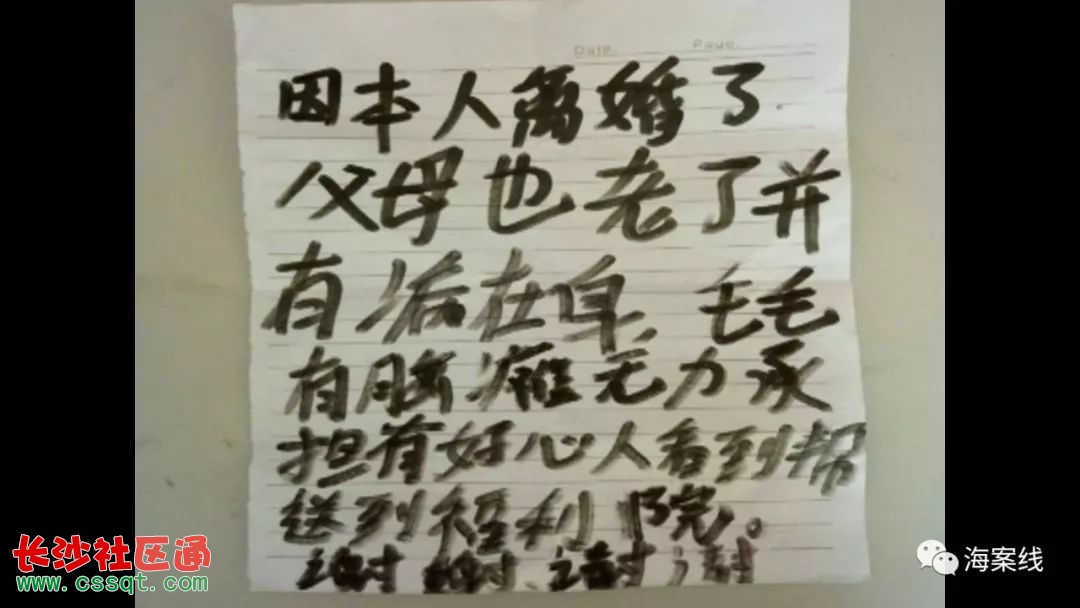 Date. Page.
因本人离婚了.
父母也老了并
有病在身,毛毛
有脑瘫无力承
担有好心人看到帮
送到福利院。
长沙社区通
www.cssqt.com
海案线